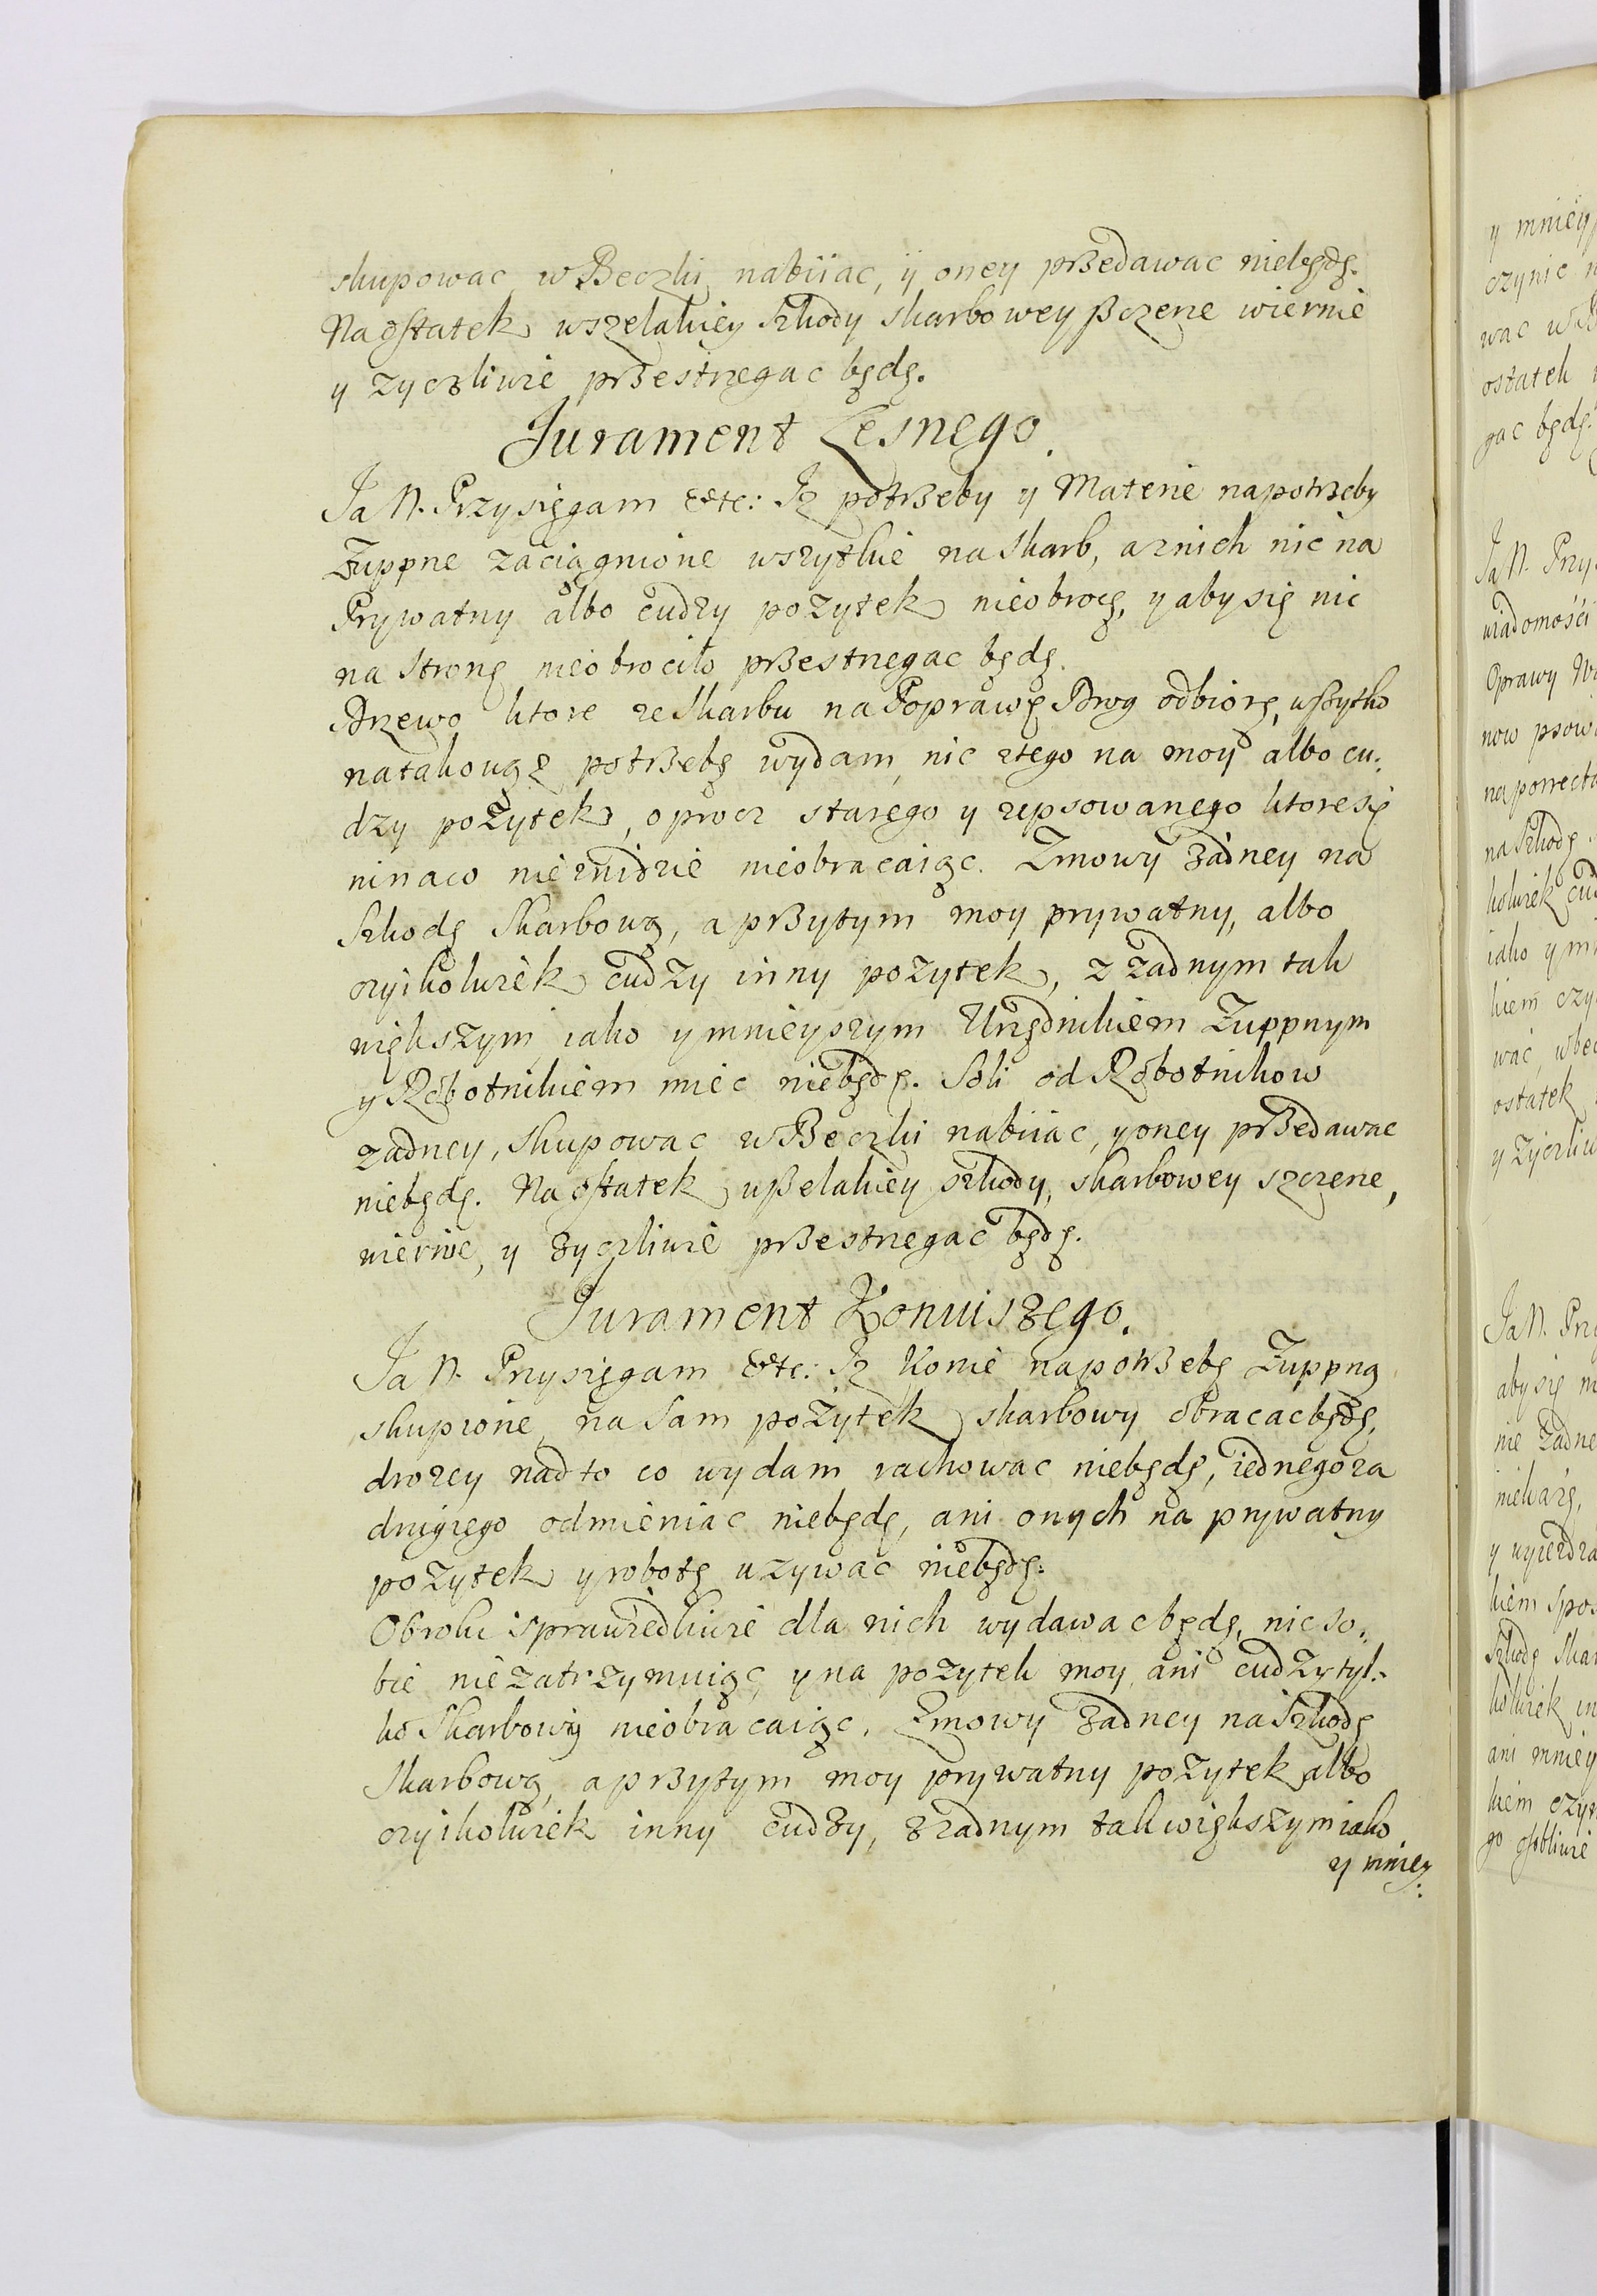 skupowac w Beczki nabiiac, ÿ oney przedawac niebędę.
Na ostatek wszelakiey Szkody skarbowey szczerze wiernie
y zyczliwie przestrzegac będę.
Jurament Lesnego.
Ja N. Przysięgam &etc: Jz potrzeby y Materie na potrzeby
Zuppne zaciągnione wszytkie na Skarb, a z nich nic na
Prywatny albo cudzy pozytek nieobrocę, y aby się nic
na stronę nieobrociło przestrzegac będę.
Drzewo ktore ze Skarbu na Poprawę Drog odbiorę, wszytko
na takowąz potrzebę wydam, nic z tego na moy albo cu:
dzy pozytek, oprocz starego y zepsowanego ktore się
ni na co nieznidzie nieobracaiąc. Zmowy zadney na
Szkodę Skarbową, a przytym moy prywatny, albo
czyikolwiek cudzy inny pozytek, z zadnym tak
większym iako y mnieyszym Urzędnikiem Zuppnym
y Robotnikiem miec niebędę. Soli od Robotnikow
zadney, skupowac w Beczki nabiiac, y oney przedawac
niebędę. Na ostatek wszelakiey szkody, skarbowey szczerze,
wiernie, y zyczliwie przestrzegac będę.
Jurament Koniuszego.
Ja N. Przysięgam &etc: Jz Konie na potrzebę Zuppną
skupione, na sam pozytek skarbowy obracac będę,
drozey nad to co wydam rachowac niebędę, iednego za
drugiego odmieniac niebędę, ani onych na prywatny
pozytek y robotę uzywac niebędę:
Obroki sprawiedliwie dla nich wydawac będę, nic so:
bie niezatrzymuiąc, y na pozytek moy ani cudzy tyl:
ko Skarbowy nieobracaiąc. Zmowy zadney na Szkodę
Skarbową, a przytym moy prywatny pozytek albo
czyikolwiek inny cudzy, z zadnym tak większym iako
y mniey:
y mniey
czynic
wac
ostatek
gac będę.
Ja N. Przy
wiadomości
Oprawy
now psow
na porrecta
na Szkodę
kolwiek cud
iako y mn
kiem czy
wac, w bec
ostatek
y zyczliw
Ja N. Prz
aby się
nie zadne
niekarę,
y wyiezdza
kiem spos
Szkodę Skar
kolwiek in
ani mniey
kiem czyn
go osobliwie